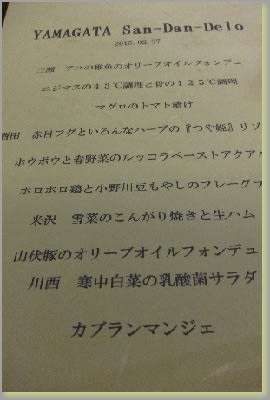 YAMAGATA San-Dan-Delo
2015.02.07
三瀬 アコの稚魚のオリーブオイルフォンデュ
ニジマスの43℃調理と骨の125℃調理
マグロのトマト漬け
酒田 赤目フグといろんなハーブの『つや姫』リゾ
ホウボウと春野菜のルッコラペーストアクア
ホロホロ鶏と小野川豆もやしのフレーグラ
米沢 雪菜のこんがり焼きと生ハム
山伏豚のオリーブオイルフォンデュ
川西 寒中白菜の乳酸菌サラダ
カブランマンジェ